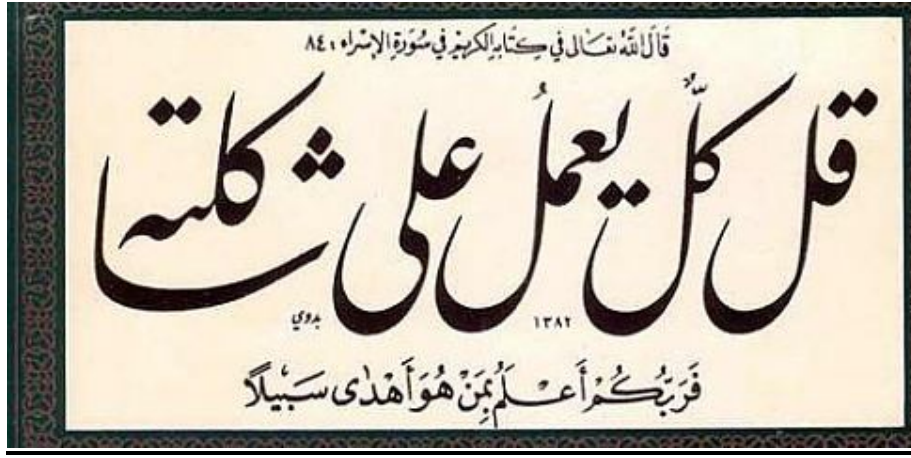 قَالَ اللهُ تعَالى في كِتَابهِ الكَريْم في سُورَةِ الإسْرَاء : ٨٤
قل كلٌّ يعملُ على شاكلته
١٣٨٢ بدوي
فَرَبُّكُمْ أَعْلَمُ بِمَنْ هُوَ أَهْدٰى سَبِيْلاً